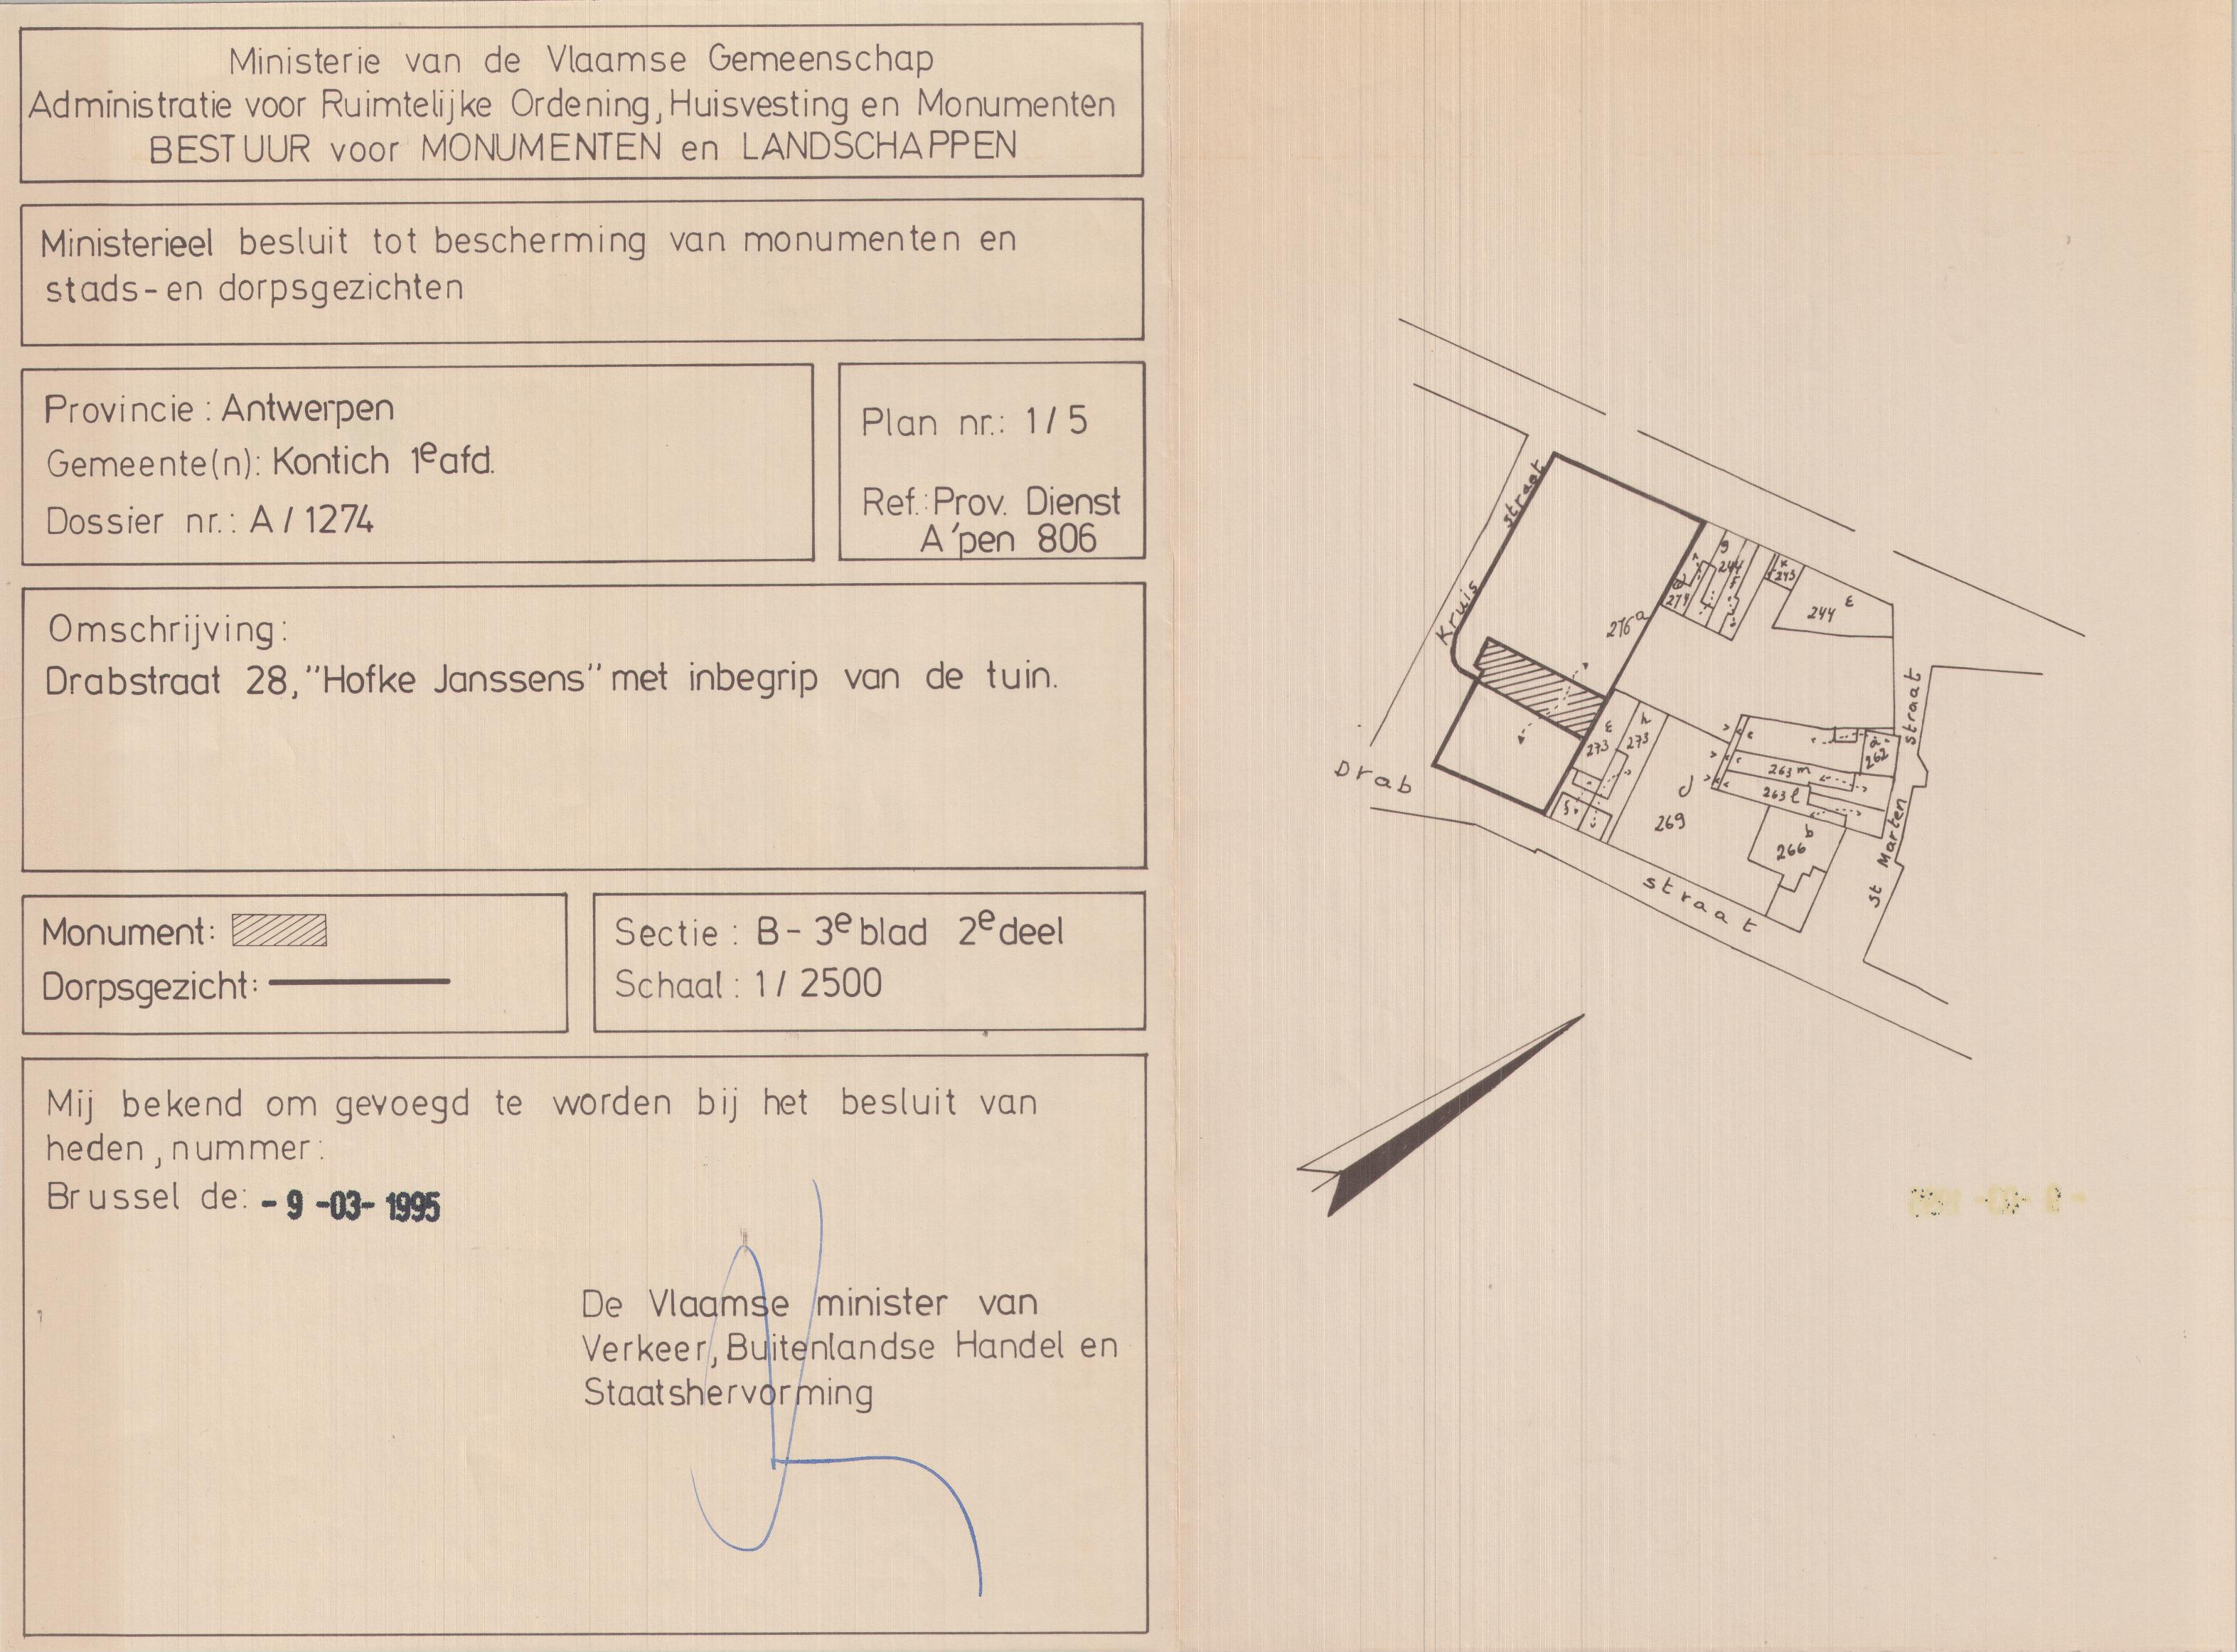 Ministerie van de Vlaamse Gemeenschap
Administratie voor Ruimtelijke Ordening, Huisvesting en Monumenten
BESTUUR voor MONUMENTEN en LANDSCHAPPEN
Ministerieel besluit tot bescherming van monumenten en
stads-en dorpsgezichten
Provincie : Antwerpen
Gemeente(n): Kontich 1e afd.
Dossier nr.: A / 1274
Plan nr.: 1 / 5
Ref.: Prov. Dienst
A'pen 806
Omschrijving:
Drabstraat 28, "Hofke Janssens" met inbegrip van de tuin.
Monument:
Dorpsgezicht:
Sectie : B - 3e blad 2e deel
Schaal : 1 / 2500
Mij bekend om gevoegd te worden bij het besluit van
heden, nummer:
Brussel de: - 9 -03- 1995
De Vlaamse minister van
Verkeer, Buitenlandse Handel en
Staatshervorming
Kruis straat
276a
g
244
243
244 ε
273 ε
273
Drab straat
d
269
263 m
263 l
a
262
b
266
St Marten straat